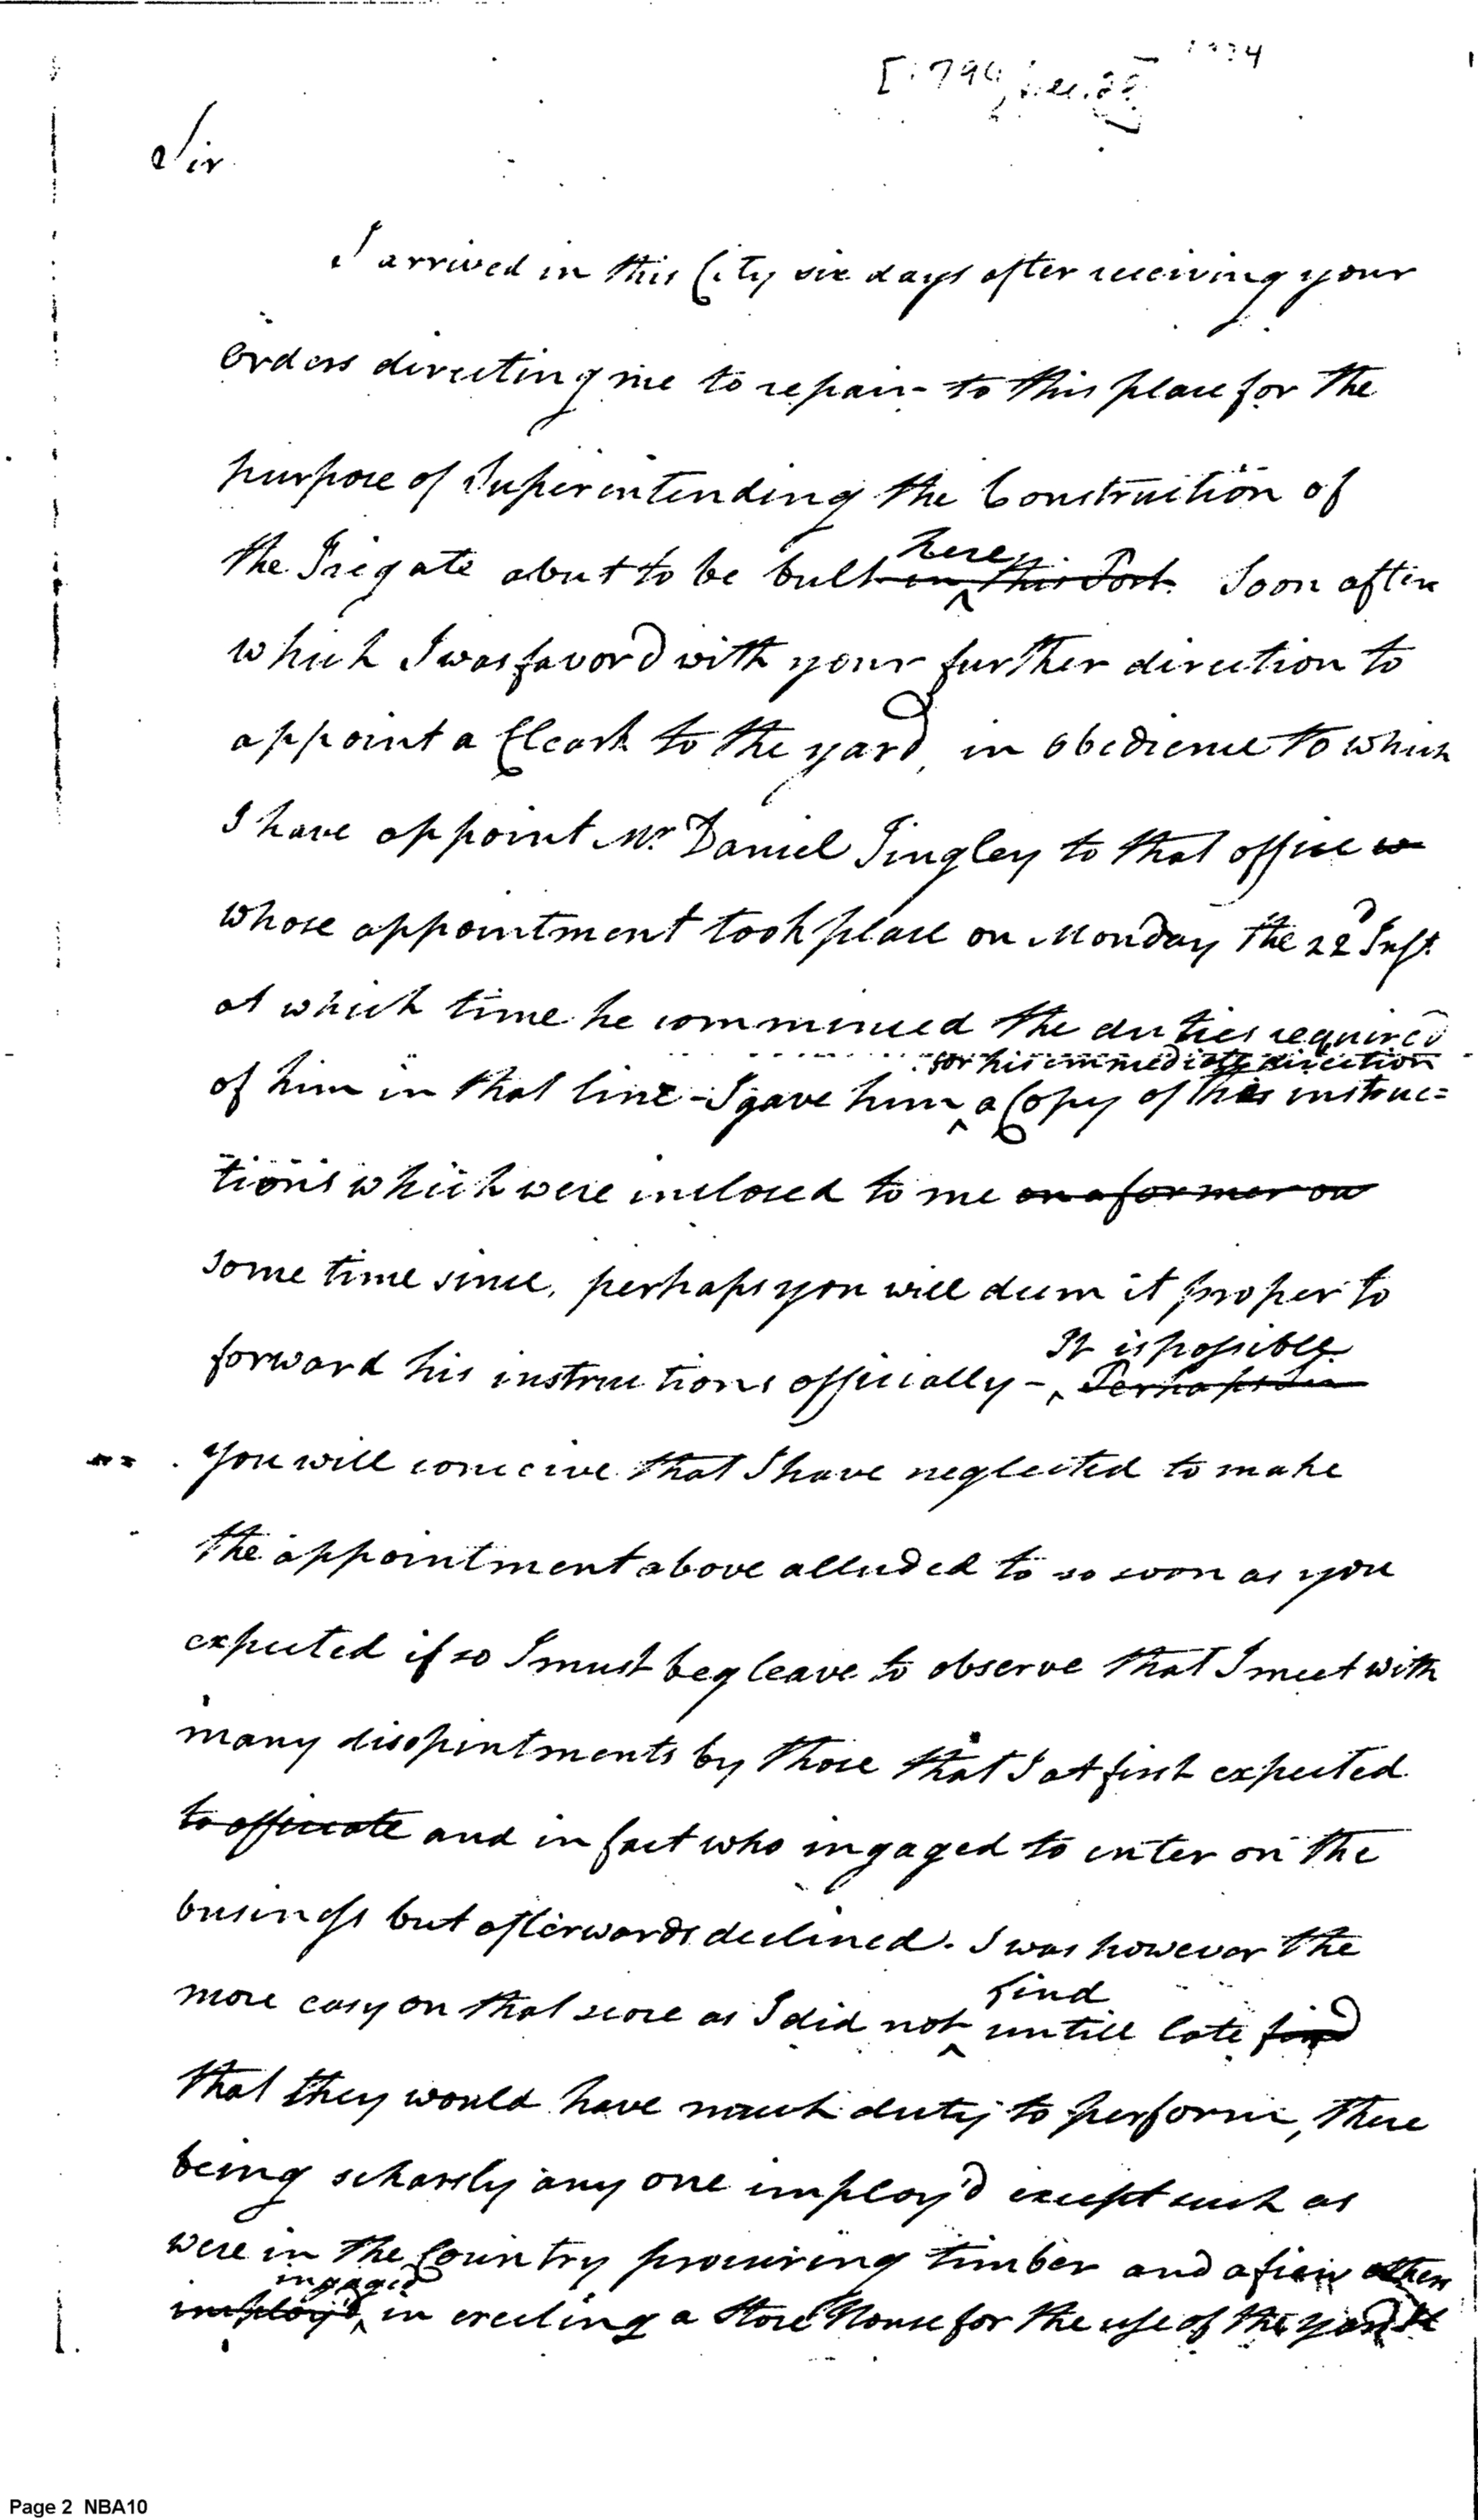 [1794, Dec. 25]
Sir
I arrived in this City six days after receiving your
Orders directing me to repair to this place for the
purpose of Superintending the Construction of
the Frigate abut to be bult in this Port. here Soon after
which I was favord with your further direction to
appoint a Cleark to the yard, in obedience to which
I have appoint Mr Daniel Tingley to that office w
whose appointment took place on Monday the 22d Inst.
at which time he commenced the duties required
for his immediate direction
of him in that line - I gave him a Copy of his instruc=
tions which were inclosed to me on a former oc
some time since, perhaps you will deem it proper to
It is possible
forward his instructions officially - Perhaps Sir
you will conceive that I have neglected to make
the appointment above alluded to so soon as you
expected if so I must beg leave to observe that I meet with
many disopintments by those that I at first expected
to officiate and in fact who ingaged to enter on the
business but afterwards declined. I was however the
more easy on that score as I did not find untill late find
that they would have much duty to perform, there
being scharsly any one imploy'd except such as
were in the Country procuring timber and a few others
imploy'd ingaged in erecting a Store House for the use of the yard
Page 2 NBA10